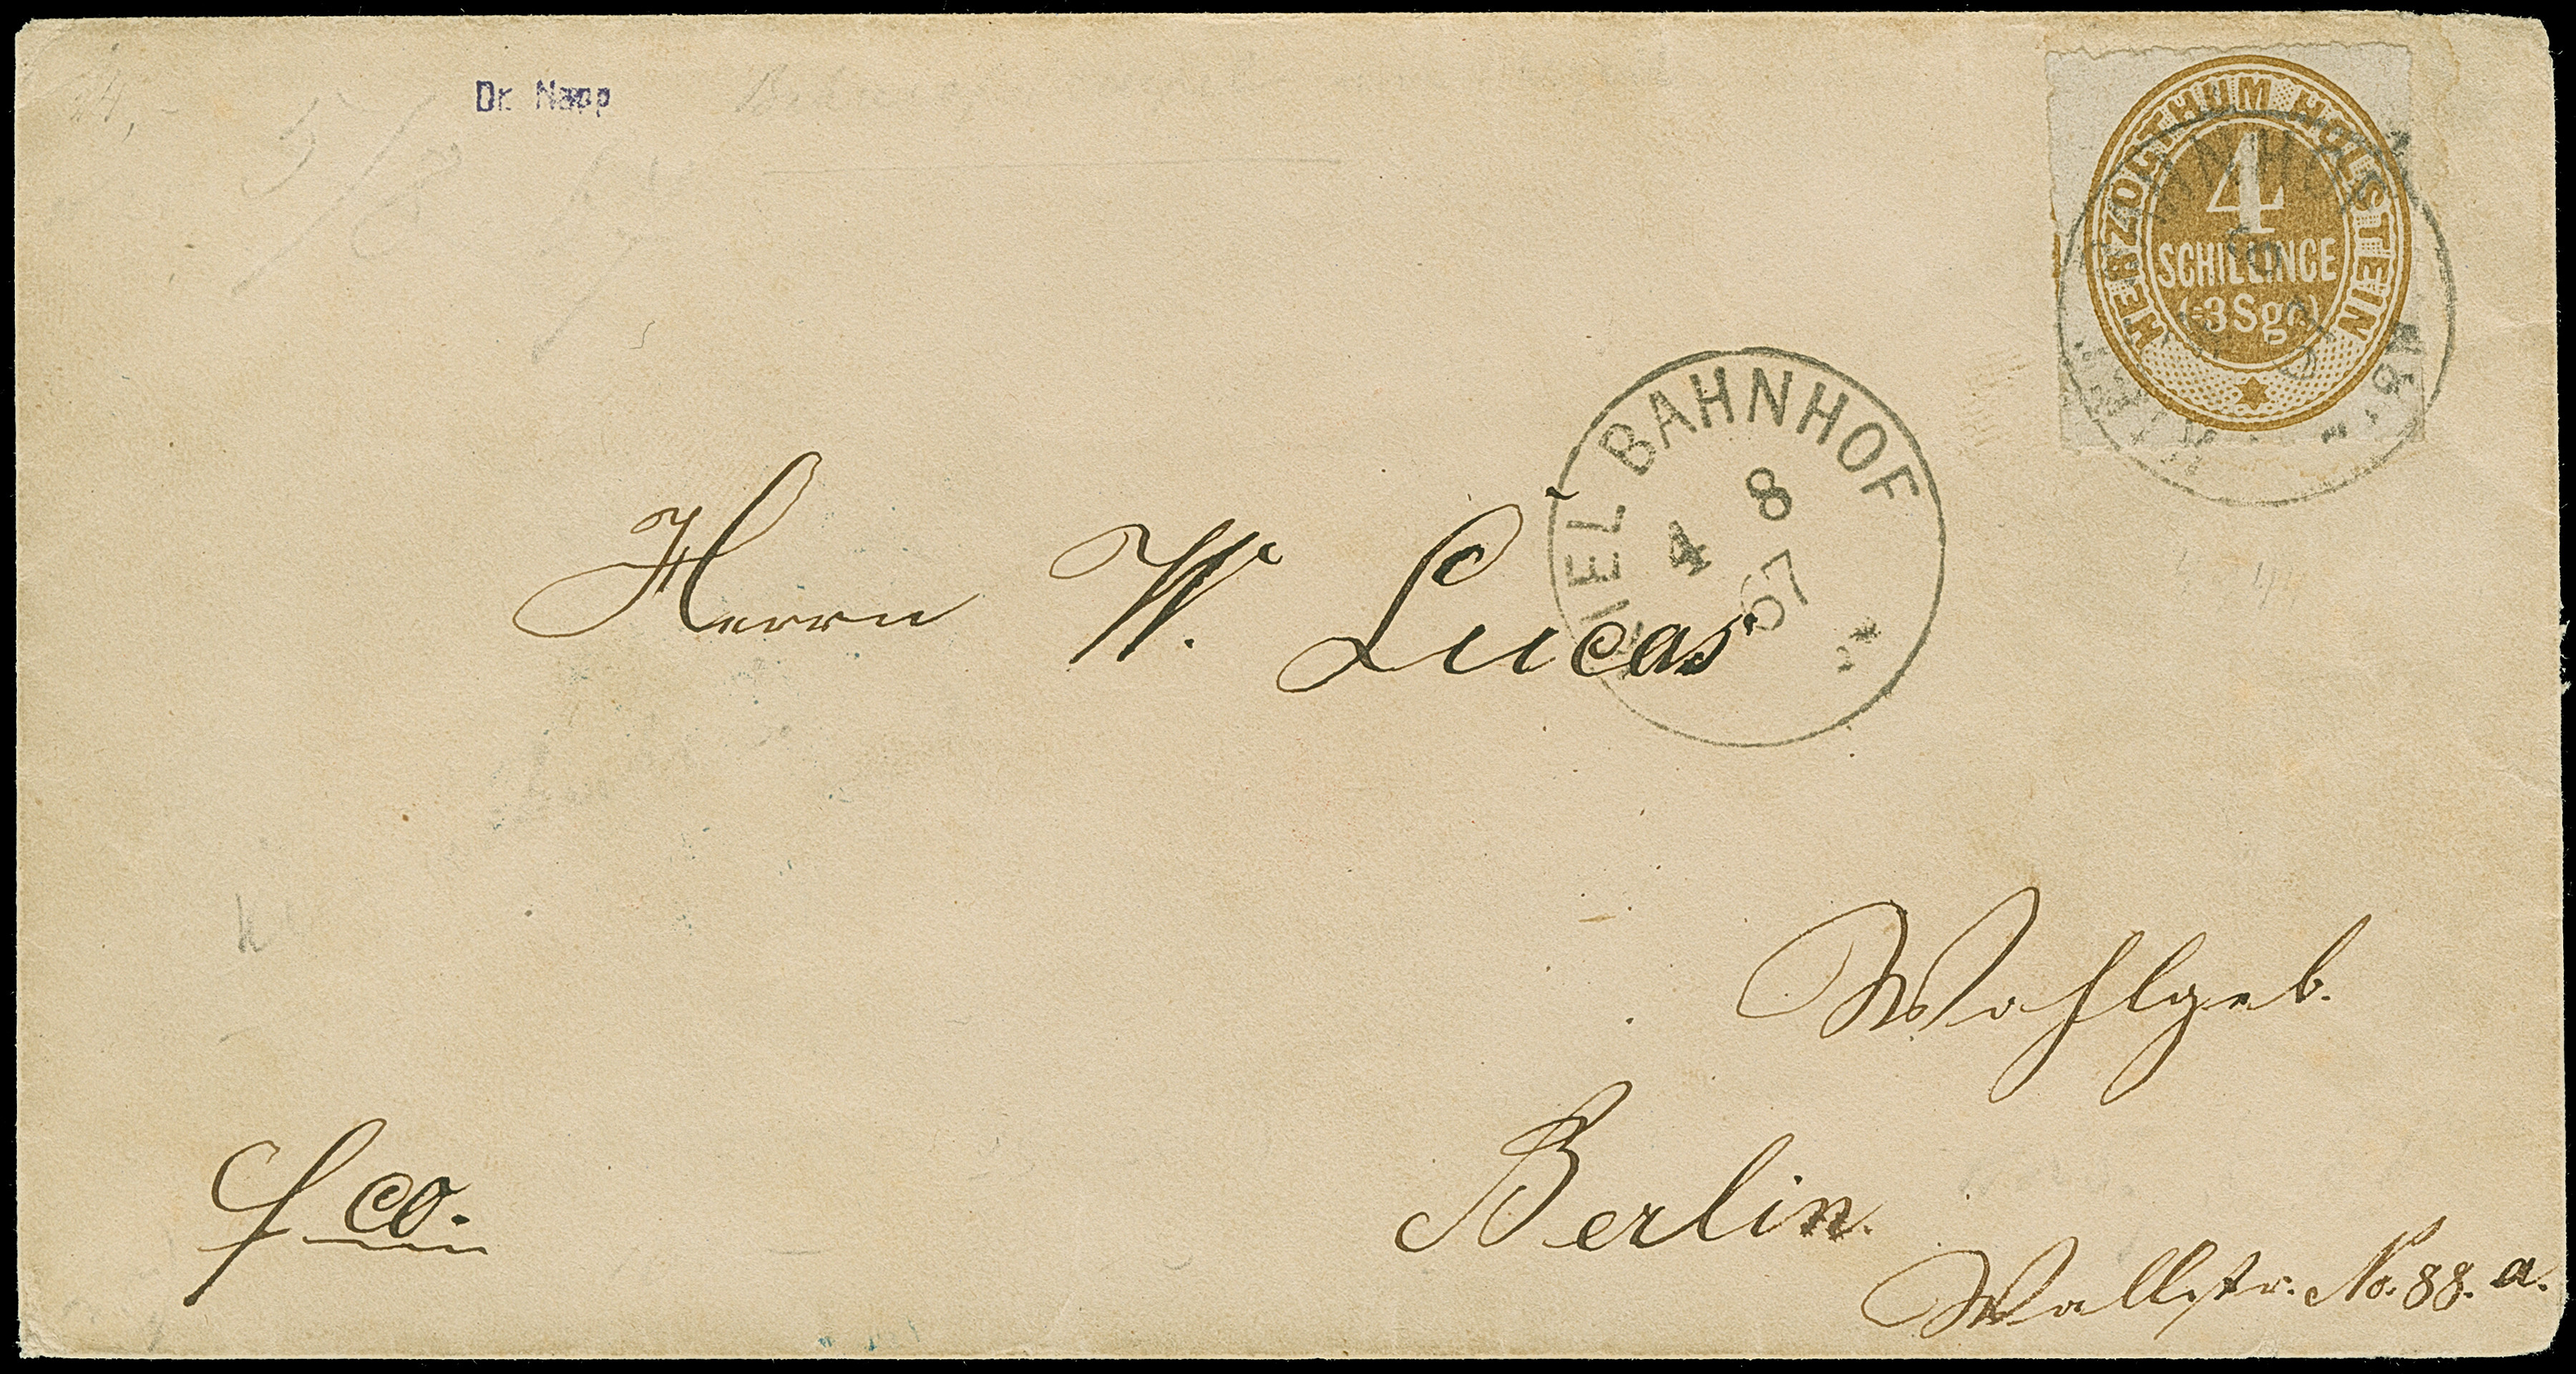 Dr. Napp
HERZOGTHUM HOLSTEIN
4
SCHILLINGE
(=3Sgr.)
KIEL BAHNHOF
4 8
67
Herrn W. Lucas
Wohlgeb.
fco.
Berlin.
Wallstr. No. 88. a.